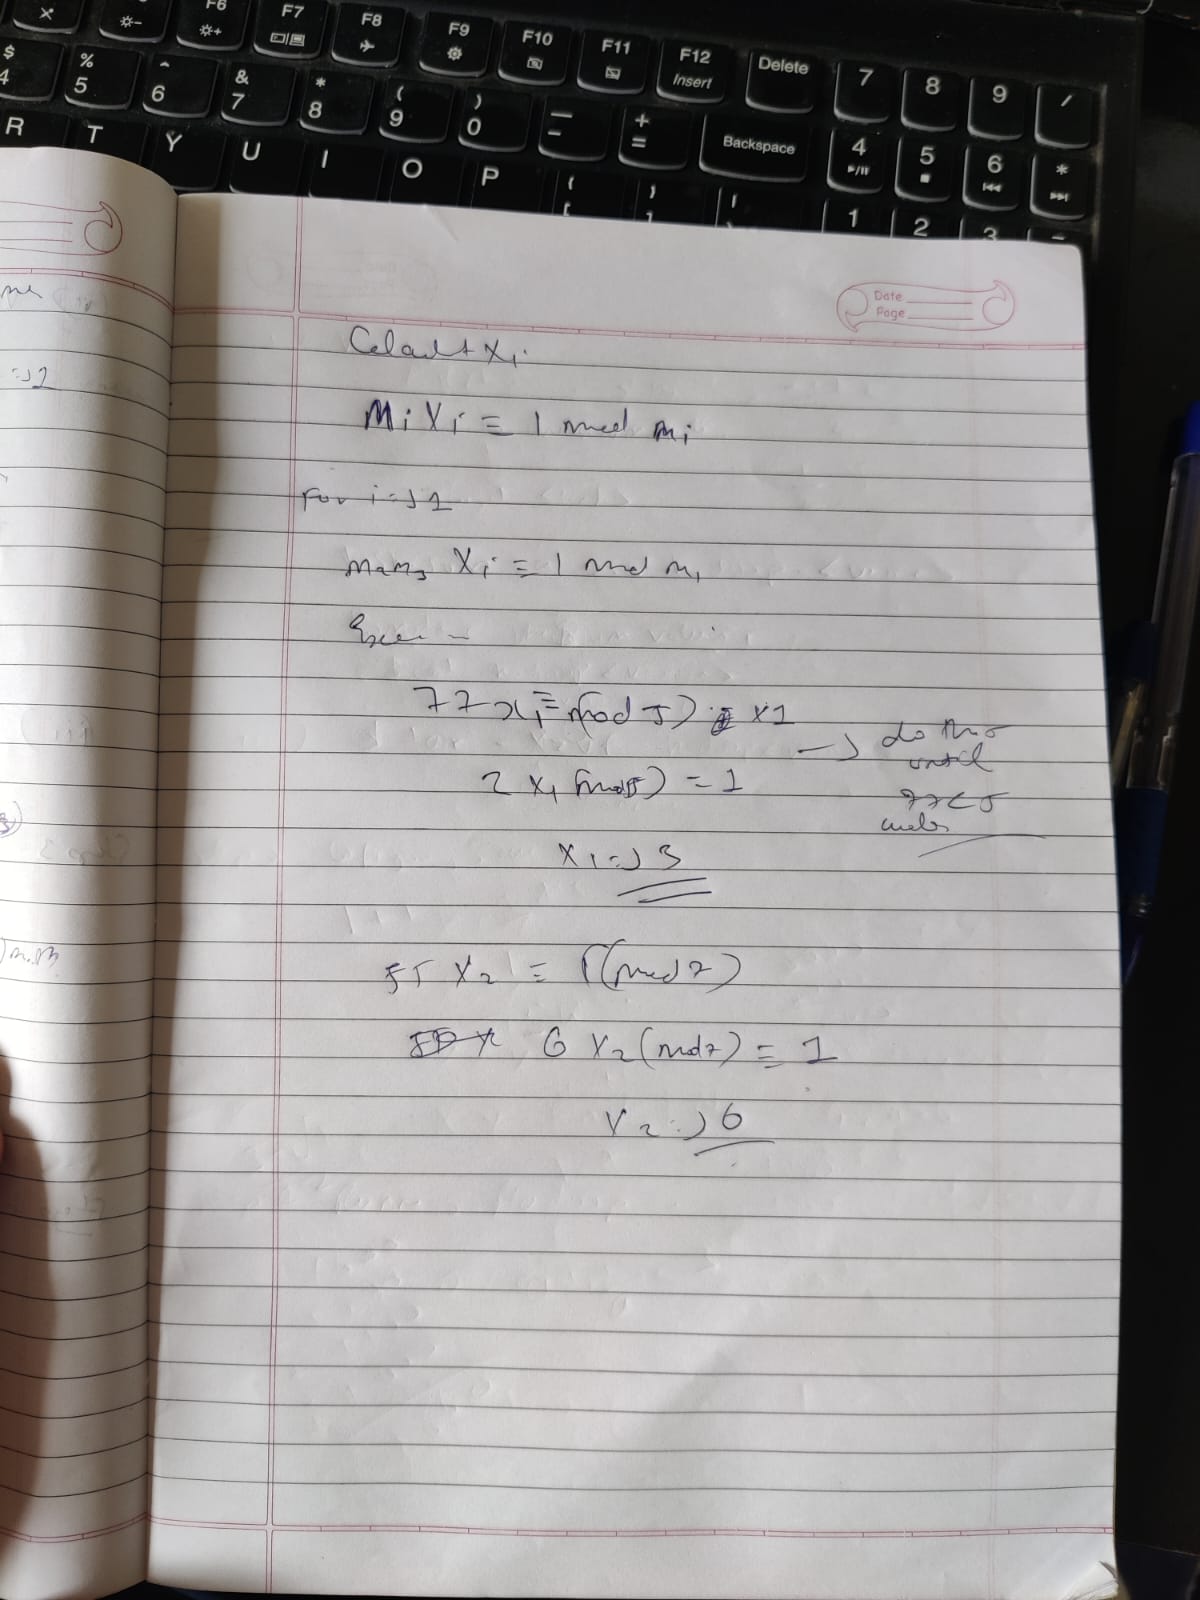 F6
F7
F8
F9
F10
F11
F12
Insert
Delete
7
8
9
/
$
4
%
5
^
6
&
7
*
8
(
9
)
0
_
-
+
=
Backspace
4
5
6
*
R
T
Y
U
I
O
P
1
2
3
Date
Page
Xi
MiXi ≡ 1 mod mi
For i => 1
m2m3 Xi ≡ 1 mod m1
77x1 ≡ (mod 5) x1
-> do this
until
77<5
2 X1 (mod 5) = 1
X1 => 3
55 X2 ≡ 1(mod 7)
6 X2 (mod 7) = 1
X2 => 6